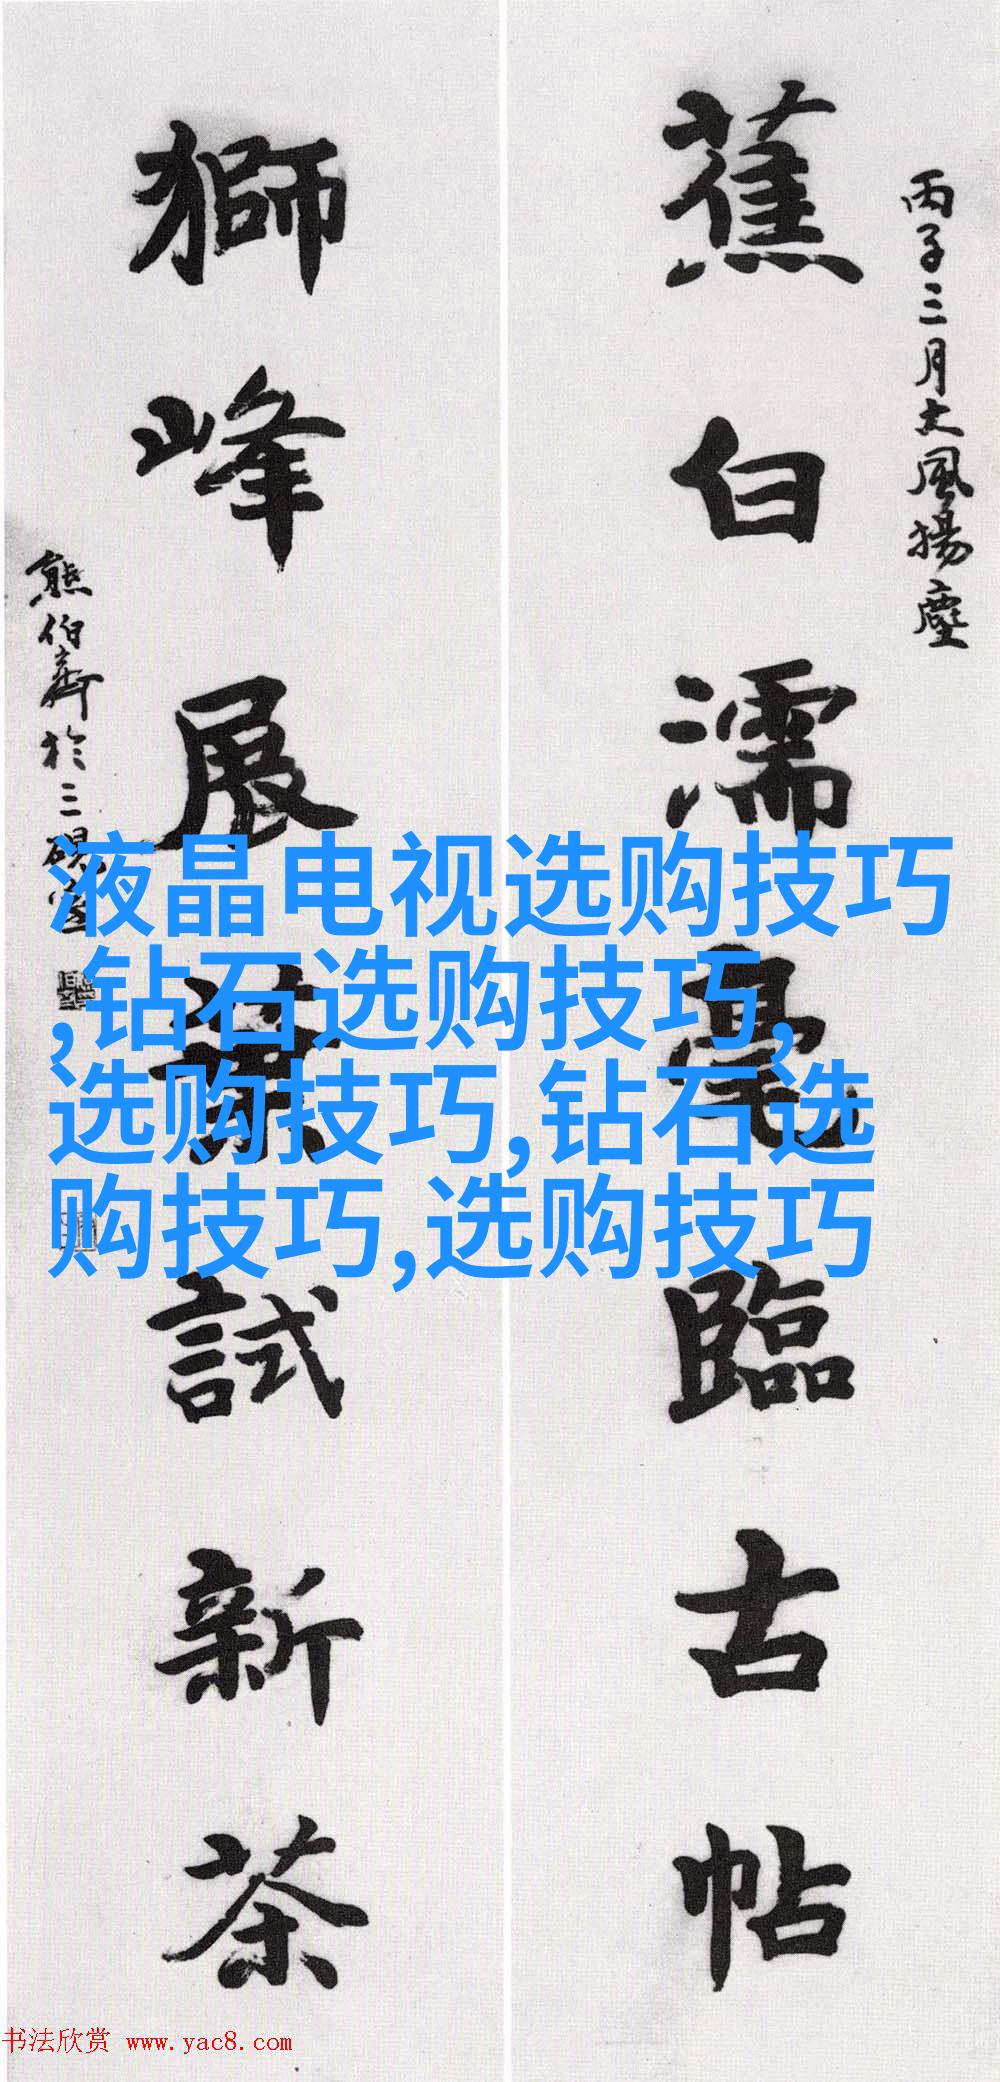 丙子三月大風揚塵
蕉白濡毫臨古帖
獅峰展葉試新茶
熊伯齊於三硯室
液晶电视选购技巧
,钻石选购技巧,
选购技巧,钻石选
购技巧,选购技巧
书法欣赏 www.yac8.com